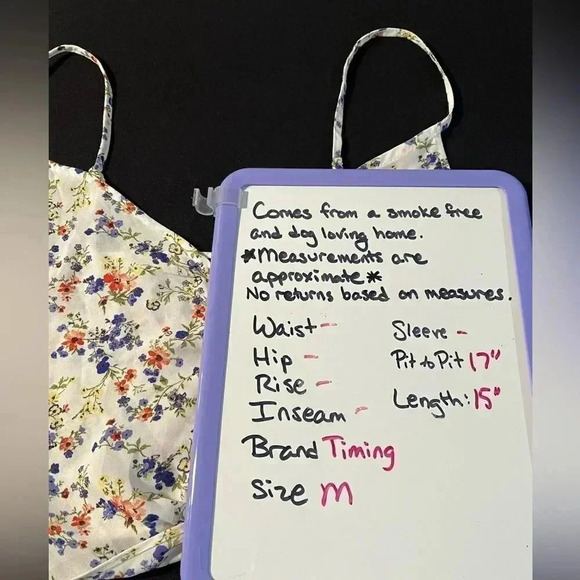 Comes from a smoke free
and dog loving home.
*Measurements are
approximate*
No returns based on measures.
Waist -
Hip -
Rise -
Inseam -
Sleeve -
Pit to Pit 17"
Length: 15"
Brand Timing
Size M